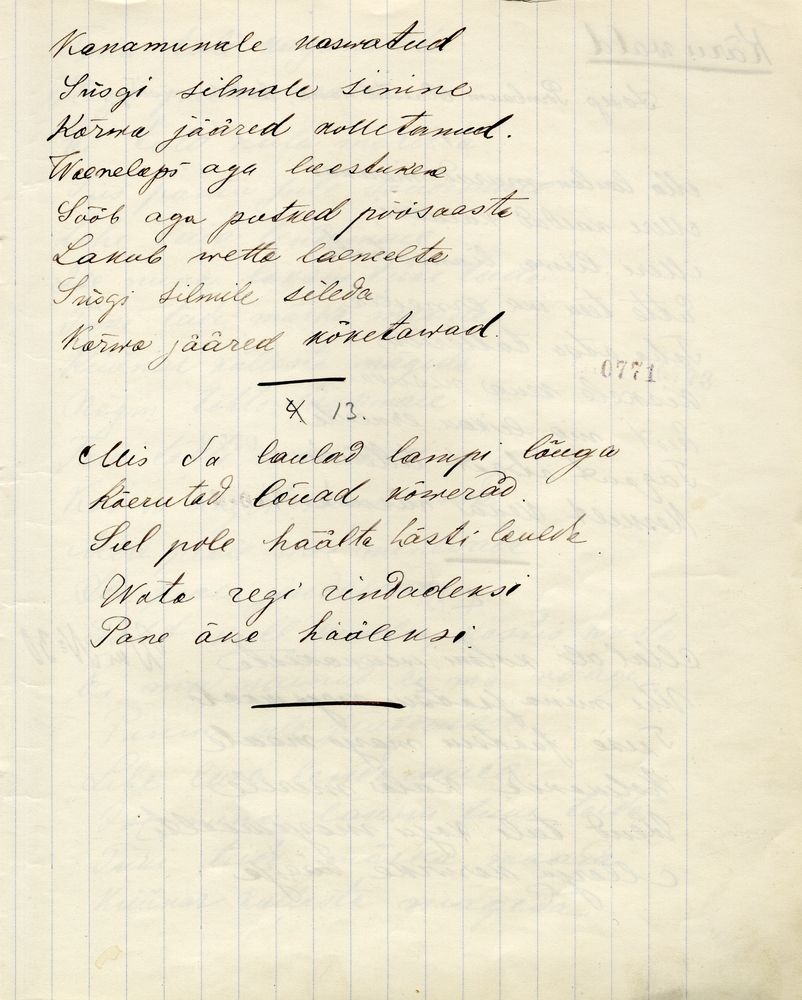 Kanamunale kaswatud
Siisgi silmale sinine
Kõrwa jääred kolletanud.
Waenelaps aga laastukene
Sööb aga putked põõsaasta
Lakub wetta laeneelta
Siisgi silmile sileda
Kõrwa jääred kõketawad.
0771
4 13.
Mis Sa laulad lampi lõuga
Käerutad lõuad kõwerad.
Sul pole häälta hästi laulda
Wota regi rindadeksi
Pane äke hääleksi.